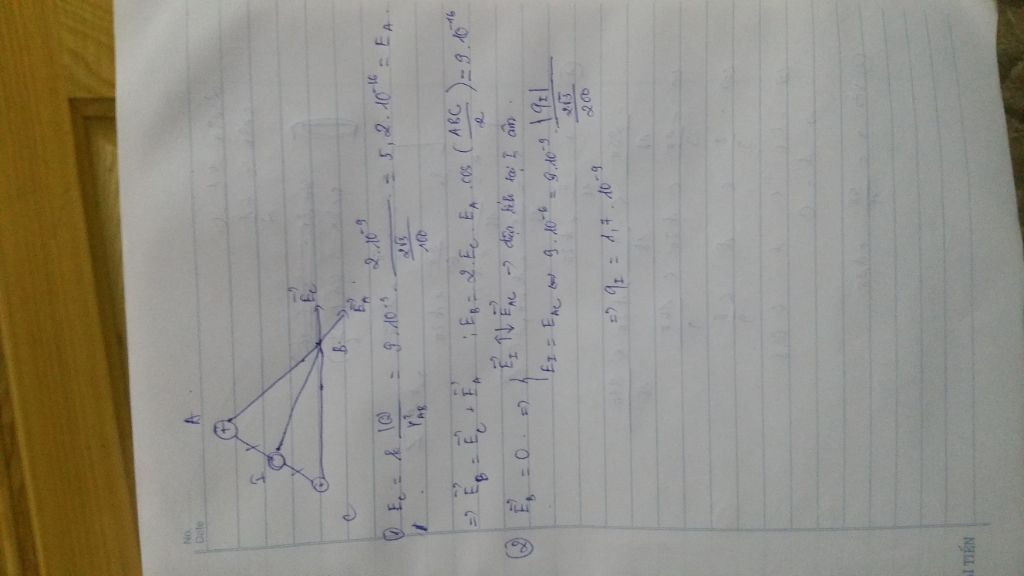 No.
Date
A
I
C
B
E⃗_C
E⃗_A
① E_C = k |Q| / r²_AB = 9.10⁻⁹ . 2.10⁻⁹ / (2√3 / 100) = 5,2.10⁻¹⁶ = E_A.
=> E⃗_B = E⃗_C + E⃗_A ; E_B = 2.E_C.E_A.cos(ABC / 2) = 9.10⁻¹⁶
② E⃗_B = 0. => { E⃗_I ↑↓ E⃗_AC -> điện tích tại I âm.
E_I = E_AC <=> 9.10⁻⁶ = 9.10⁻⁹ |q_I| / (2√3 / 200)
=> q_I = 1,7.10⁻⁹
TIẾN